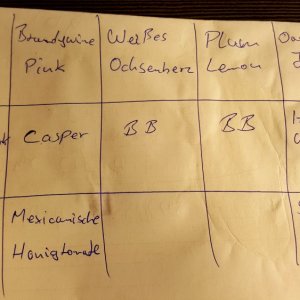 Brandywine
Pink
Weißes
Ochsenherz
Plum
Lemon
Casper
BB
BB
Mexicanische
Honigtomate